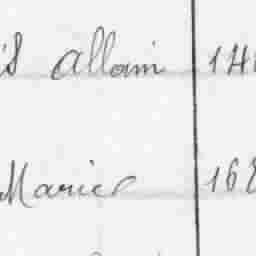 Allain 14
Marie 168